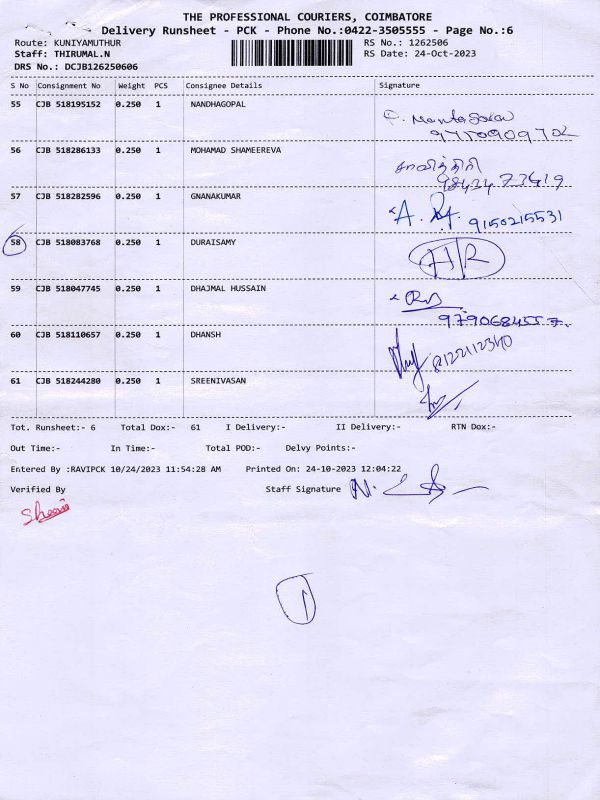 THE PROFESSIONAL COURIERS, COIMBATORE
Delivery Runsheet - PCK - Phone No.:0422-3505555 - Page No.:6
Route: KUNIYAMUTHUR RS No.: 1262506
Staff: THIRUMAL.N RS Date: 24-Oct-2023
DRS No.: DCJB126250606
S No Consignment No Weight PCS Consignee Details Signature
55 CJB 518195152 0.250 1 NANDHAGOPAL
9750909702
56 CJB 518286133 0.250 1 MOHAMAD SHAMEEREVA சாவித்திரி
9843473419
57 CJB 518282596 0.250 1 GNANAKUMAR 9150215531
58 CJB 518083768 0.250 1 DURAISAMY H/R
59 CJB 518047745 0.250 1 DHAJMAL HUSSAIN
9790684557
60 CJB 518110657 0.250 1 DHANSH 8122112340
61 CJB 518244280 0.250 1 SREENIVASAN
Tot. Runsheet:- 6 Total Dox:- 61 I Delivery:- II Delivery:- RTN Dox:-
Out Time:- In Time:- Total POD:- Delvy Points:-
Entered By :RAVIPCK 10/24/2023 11:54:28 AM Printed On: 24-10-2023 12:04:22
Verified By Staff Signature
1